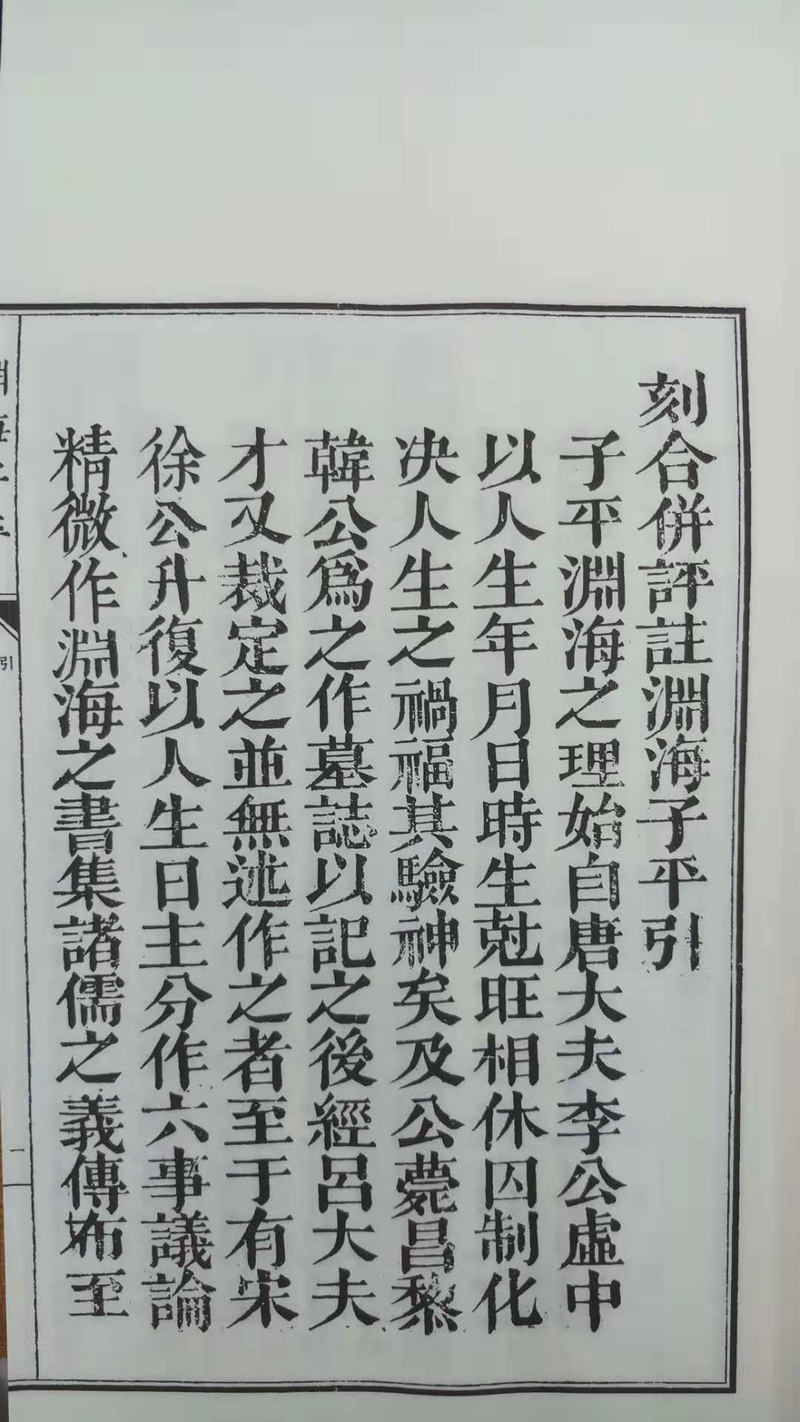 刻合併評註淵海子平引
子平淵海之理始自唐大夫李公虛中
以人生年月日時生尅旺相休囚制化
决人生之禍福其驗神矣及公薨昌黎
韓公爲之作墓誌以記之後經呂大夫
才又裁定之並無述作之者至于有宋
徐公升復以人生日主分作六事議論
精微作淵海之書集諸儒之義傳布至
引
一